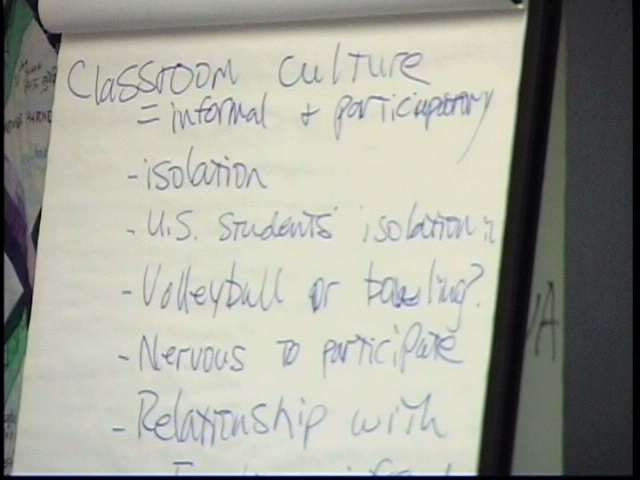 Classroom Culture
= informal + participatory
- isolation
- U.S. students' isolation
- Volleyball or bowling?
- Nervous to participate
- Relationship with